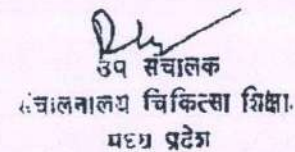 उप संचालक
संचालनालय चिकित्सा शिक्षा.
मध्य प्रदेश